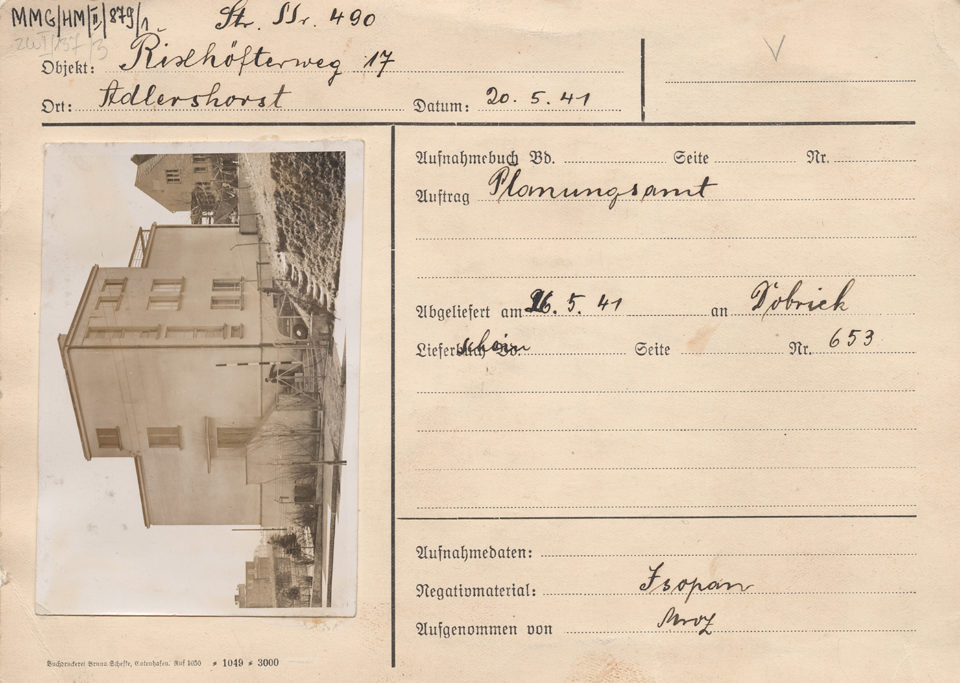 MMG/HM/II/879/1
Str. Nr. 490
Objekt: Rixhöfterweg 17
Ort: Adlershorst
Datum: 20. 5. 41
Aufnahmebuch Bd. Seite Nr.
Auftrag Planungsamt
Abgeliefert am 26. 5. 41 an Dobrick
Lieferschein Seite Nr. 653
Aufnahmedaten:
Negativmaterial: Isopan
Aufgenommen von Mroz
Buchdruckerei Bruno Scheffke, Gotenhafen. Ruf 1050 * 1049 * 3000